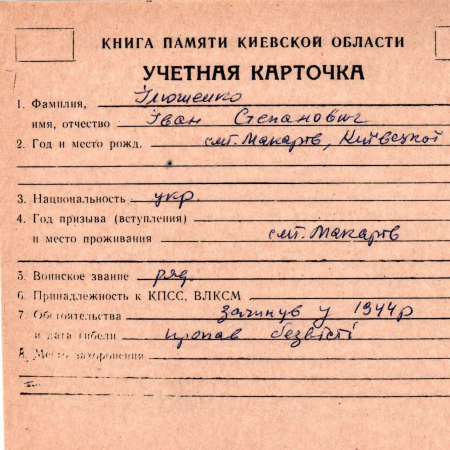 КНИГА ПАМЯТИ КИЕВСКОЙ ОБЛАСТИ
УЧЕТНАЯ КАРТОЧКА
1. Фамилия, Ілюшенко
имя, отчество Іван Степанович
2. Год и место рожд. смт. Макарів, Київської
3. Национальность укр.
4. Год призыва (вступления)
и место проживания смт. Макарів
5. Воинское звание ряд
6. Принадлежность к КПСС, ВЛКСМ
7. Обстоятельства загинув у 1944р
и дата гибели пропав безвісті
8. Место захоронения